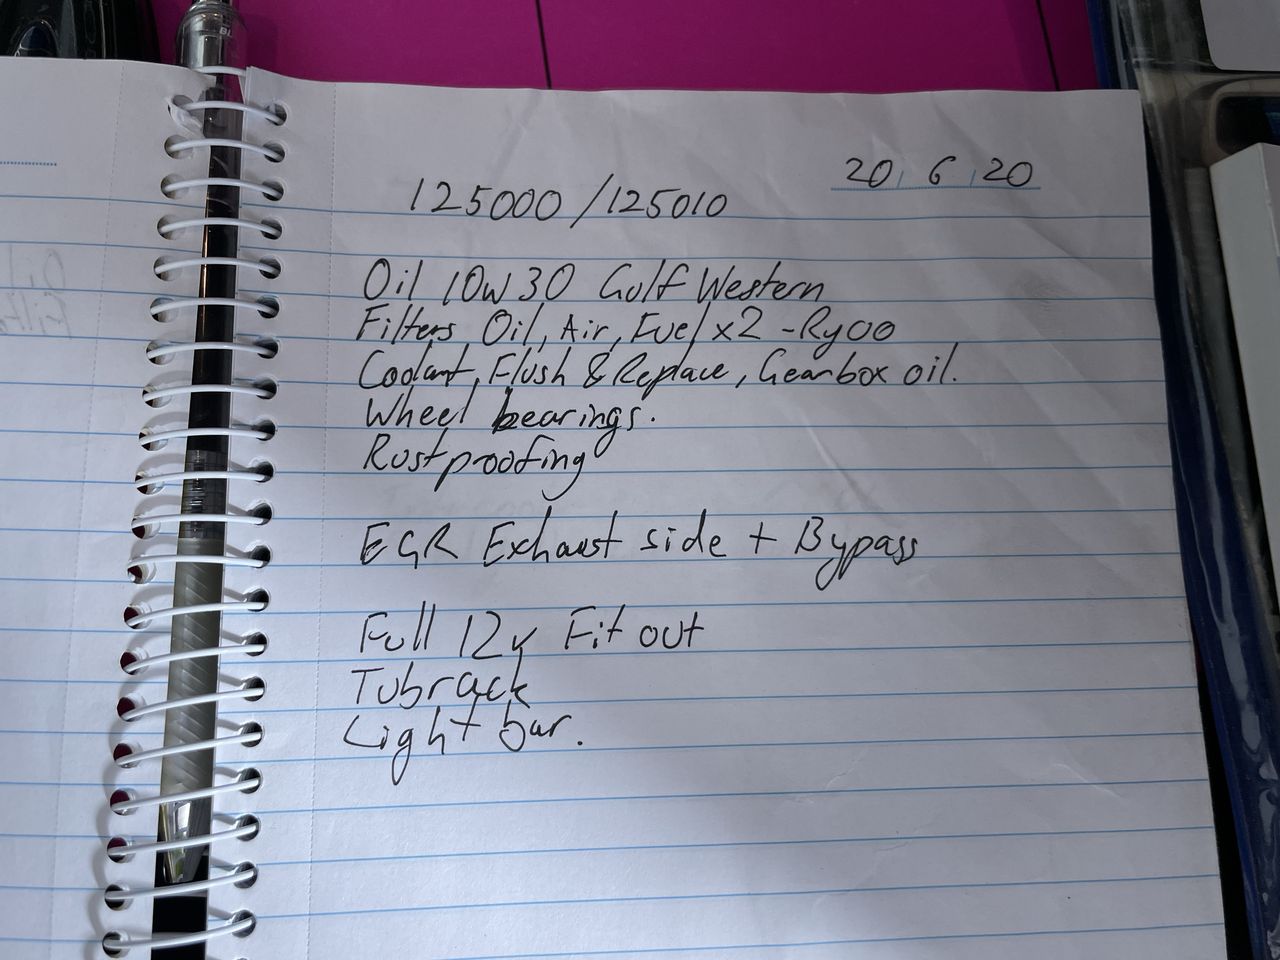 20, 6, 20
125000/125010
Oil 10W30 Gulf Western
Filters, Oil, Air, Fuel x2 - Ryco
Coolant, Flush & Replace, Gearbox oil.
Wheel bearings.
Rustproofing
EGR Exhaust side + Bypass
Full 12v Fit out
Tubrack
Light bar.